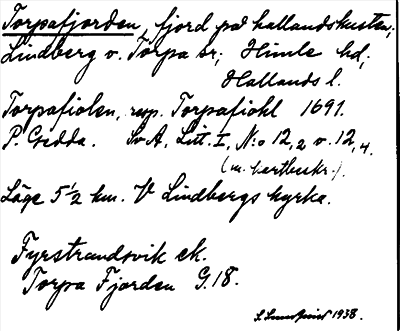 Torpafjorden, fjord på hallandskusten;
Lindberg o. Torpa sr; Himle hd;
Hallands l.
Torpafiolen, resp. Torpafiohl 1691.
P. Gedda. SvA, Litt. I, N:o 12,2 o. 12,4.
(m. kartbeskr.).
Läge 5 1/2 km. V Lindbergs kyrka.
Fyrstrandsvik ek.
Torpa Fjorden G.18.
1938.